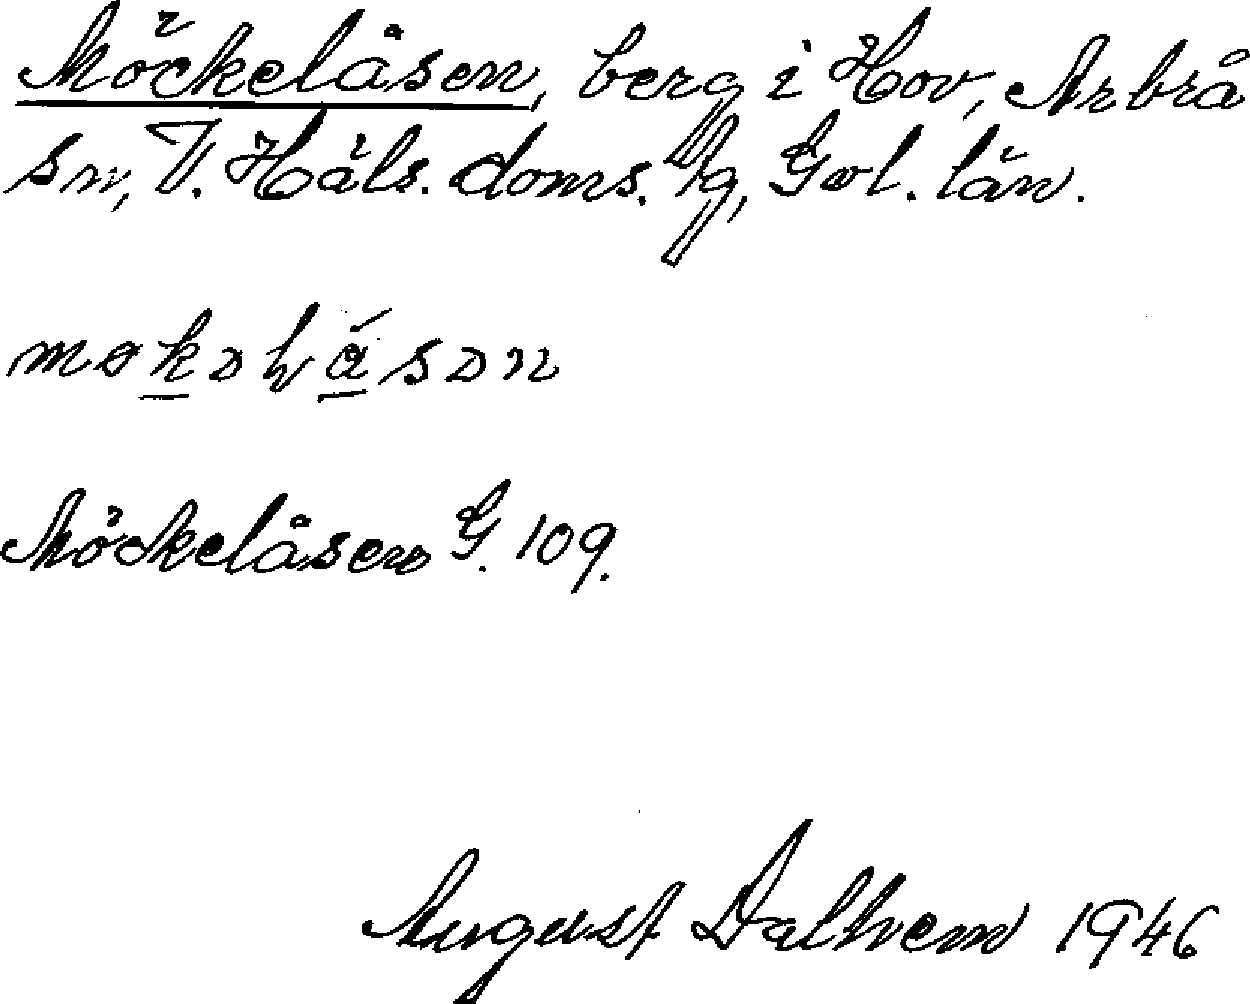 Möckelåsen, berg i Hov, Arbrå
sn, V. Häls. doms. hg, Gvl. län.
Möckelåsen G. 109.
August Dalhem 1946